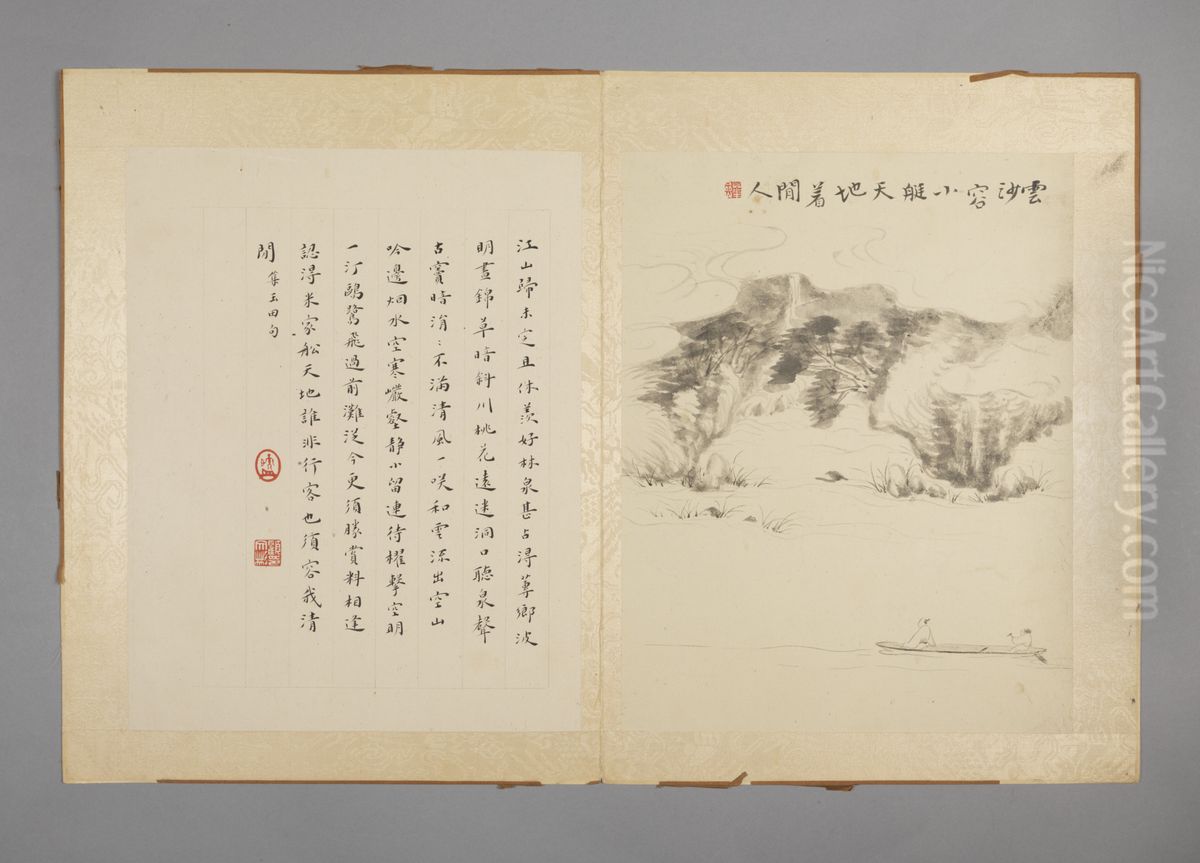 雲沙容小艇天地着閒人
江山歸未定且休羨好林泉甚占得蓴鄉波
明晝錦草暗斜川桃花遠迷洞口聽泉聲
古竇暗涓〻不滿清風一咲和雲流出空山
吟邊烟水空寒巖壑靜小留連待櫂擊空明
一汀鷗鷺飛過前灘從今更須勝賞料相逢
認得米家舩天地誰非行客也須容我清
閒 集玉田句
NiceArtGallery.com